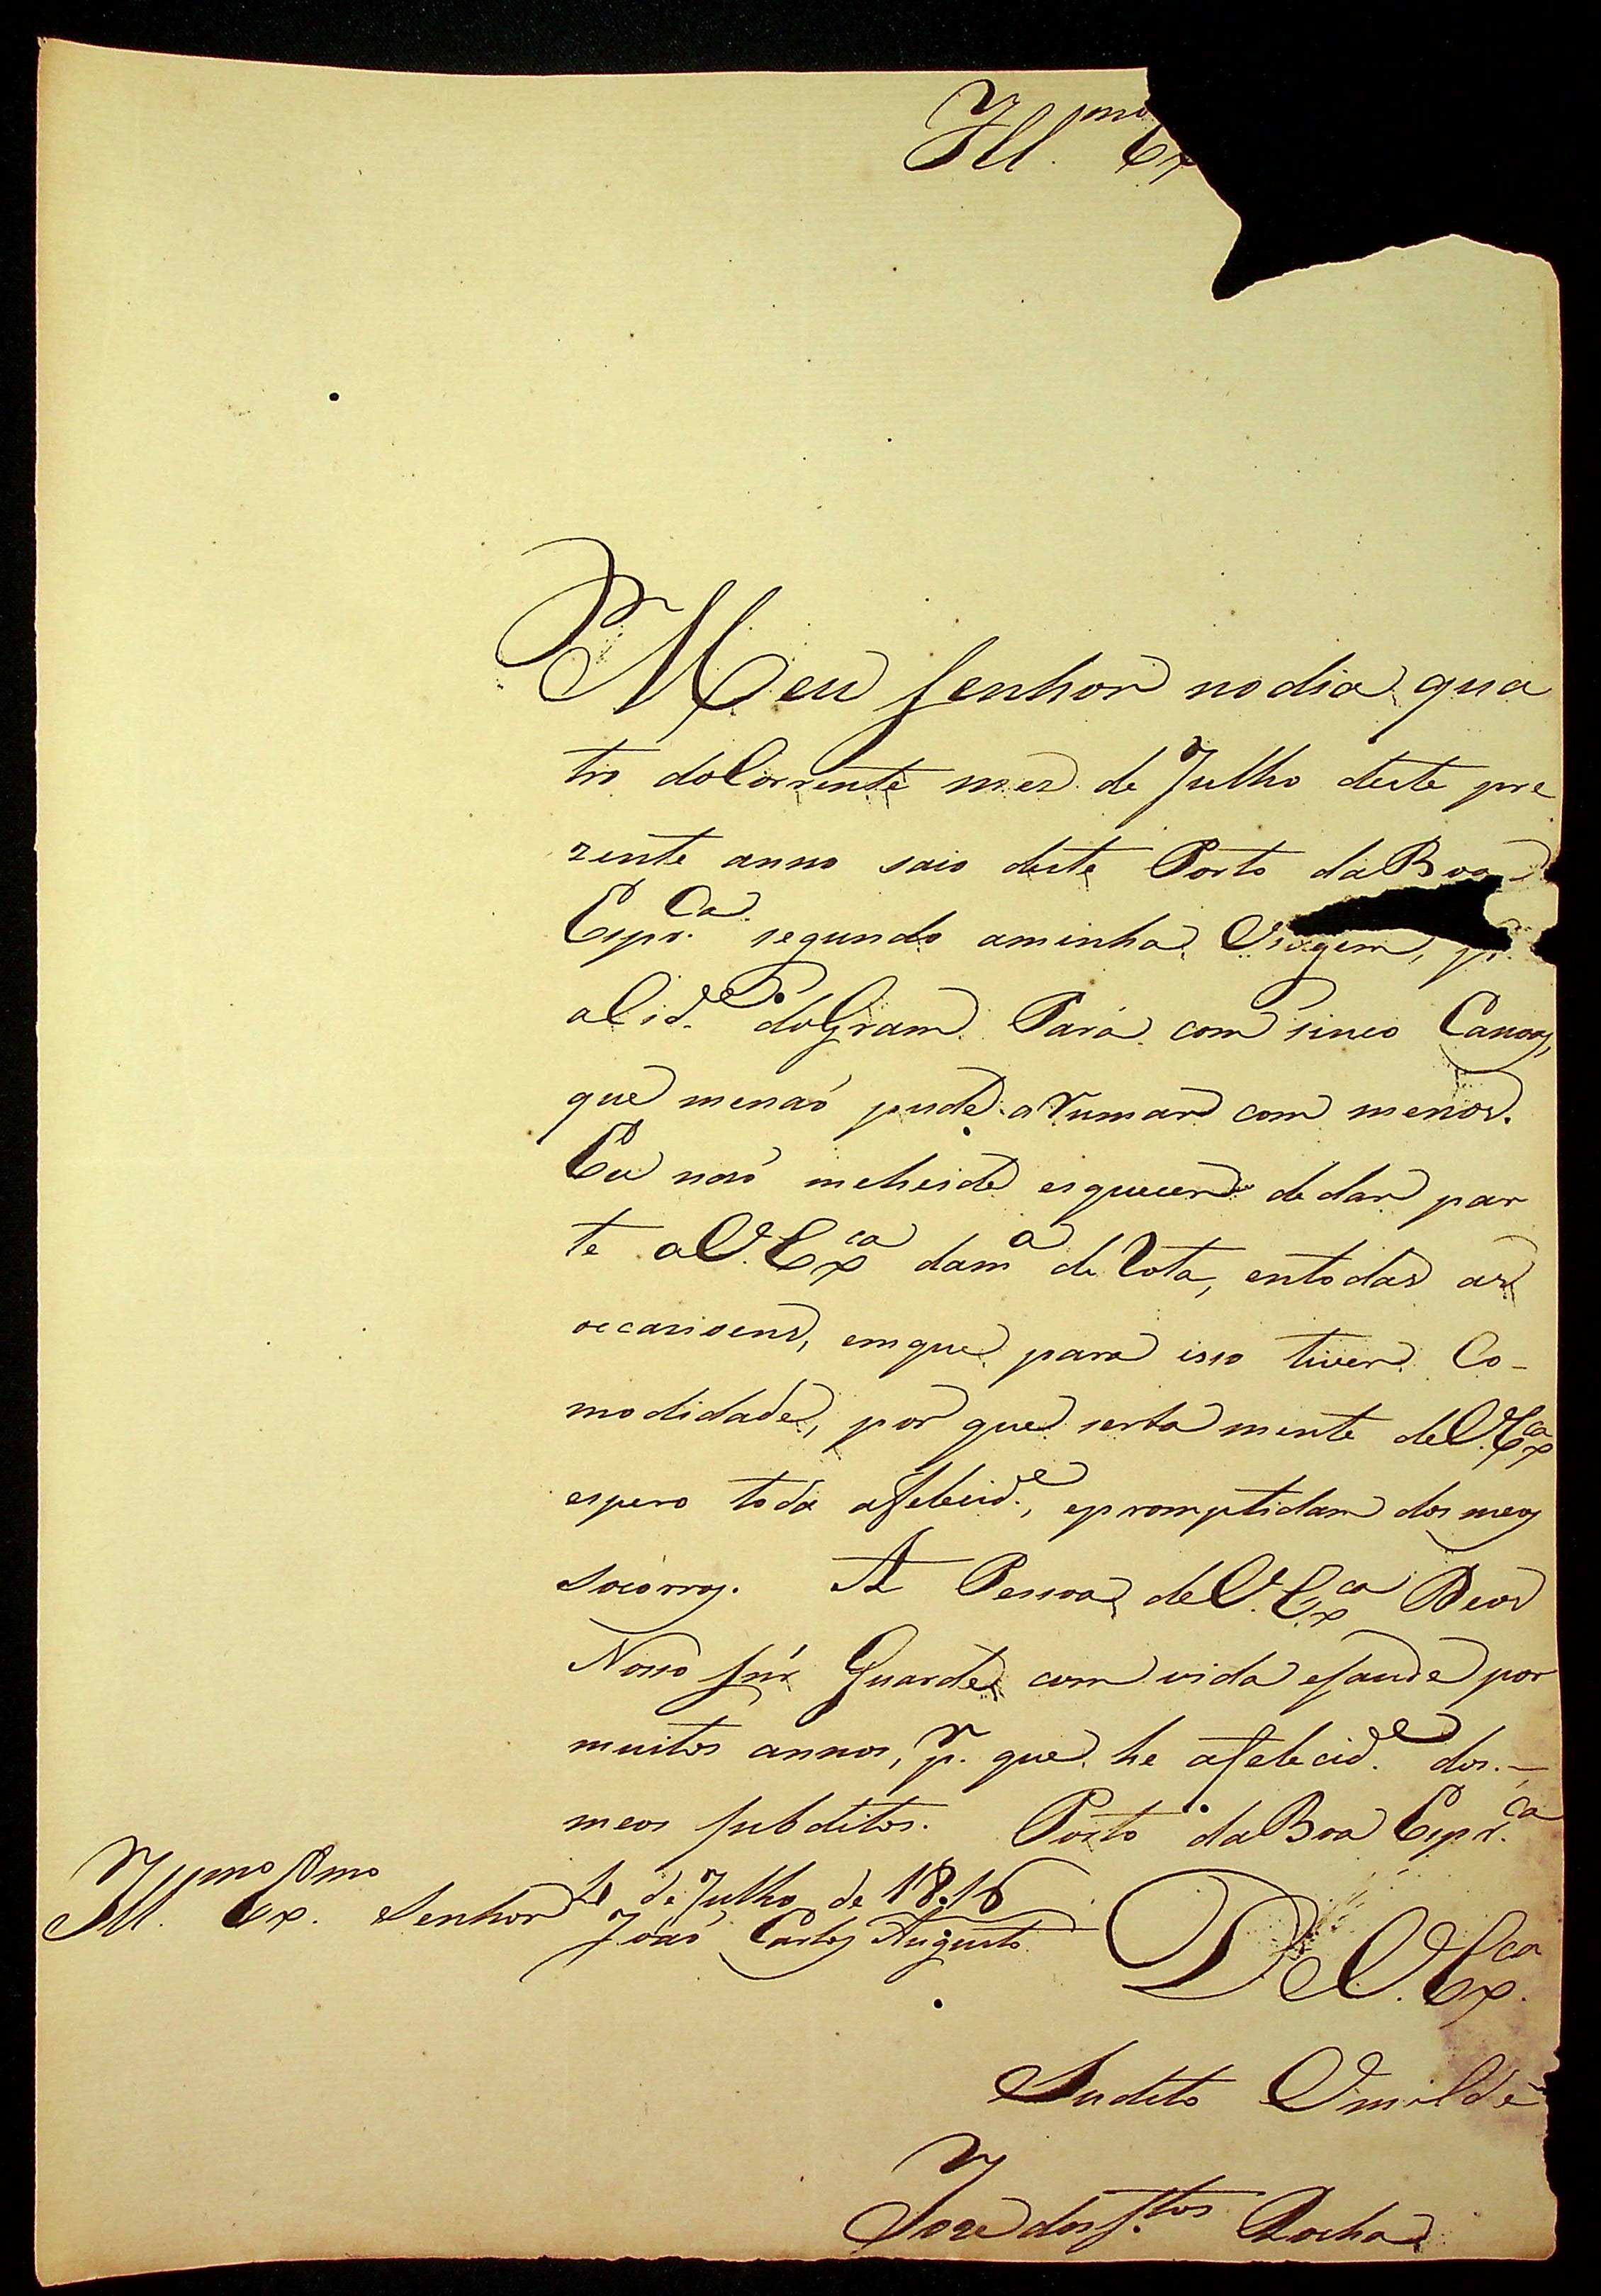 Ill.mo Ex
Meu Senhor no dia qua
tro do Corrente mez de Julho deste pre
zente anno saio deste Porto da Boa
Espr.Ca segundo aminha Viagem, p.
a Cid.e do Gram Pará com sinco Canoas,
que menaõ pude arumar com menos.
Eu naõ meheide esquecer de dar par
te a V. Ex.ca da m.a de Rota, entodas as
occasioens, emque para isso tiver Co-
modidade, por que serta mente de V. Ex.ca
espero toda afelecid.e, epromptidam dos meos
socórros. A Pessoa de V. Ex.ca Deos
Nosso Snr Guarde com vida esaude por
muitos annos, p.r que he afelecid.e dos.—
meos Subditos. Porto da Boa Espr.ca
4 de Julho de 1816
Ill.mo Ex.mo Senhor Joaõ Carlos Augusto
De V. Ex.ca
Sudito Umilde
Joze dos S.tos Rocha